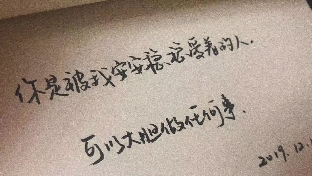 你是被我安安稳稳爱着的人.
可以大胆做任何事.
2019.12.1